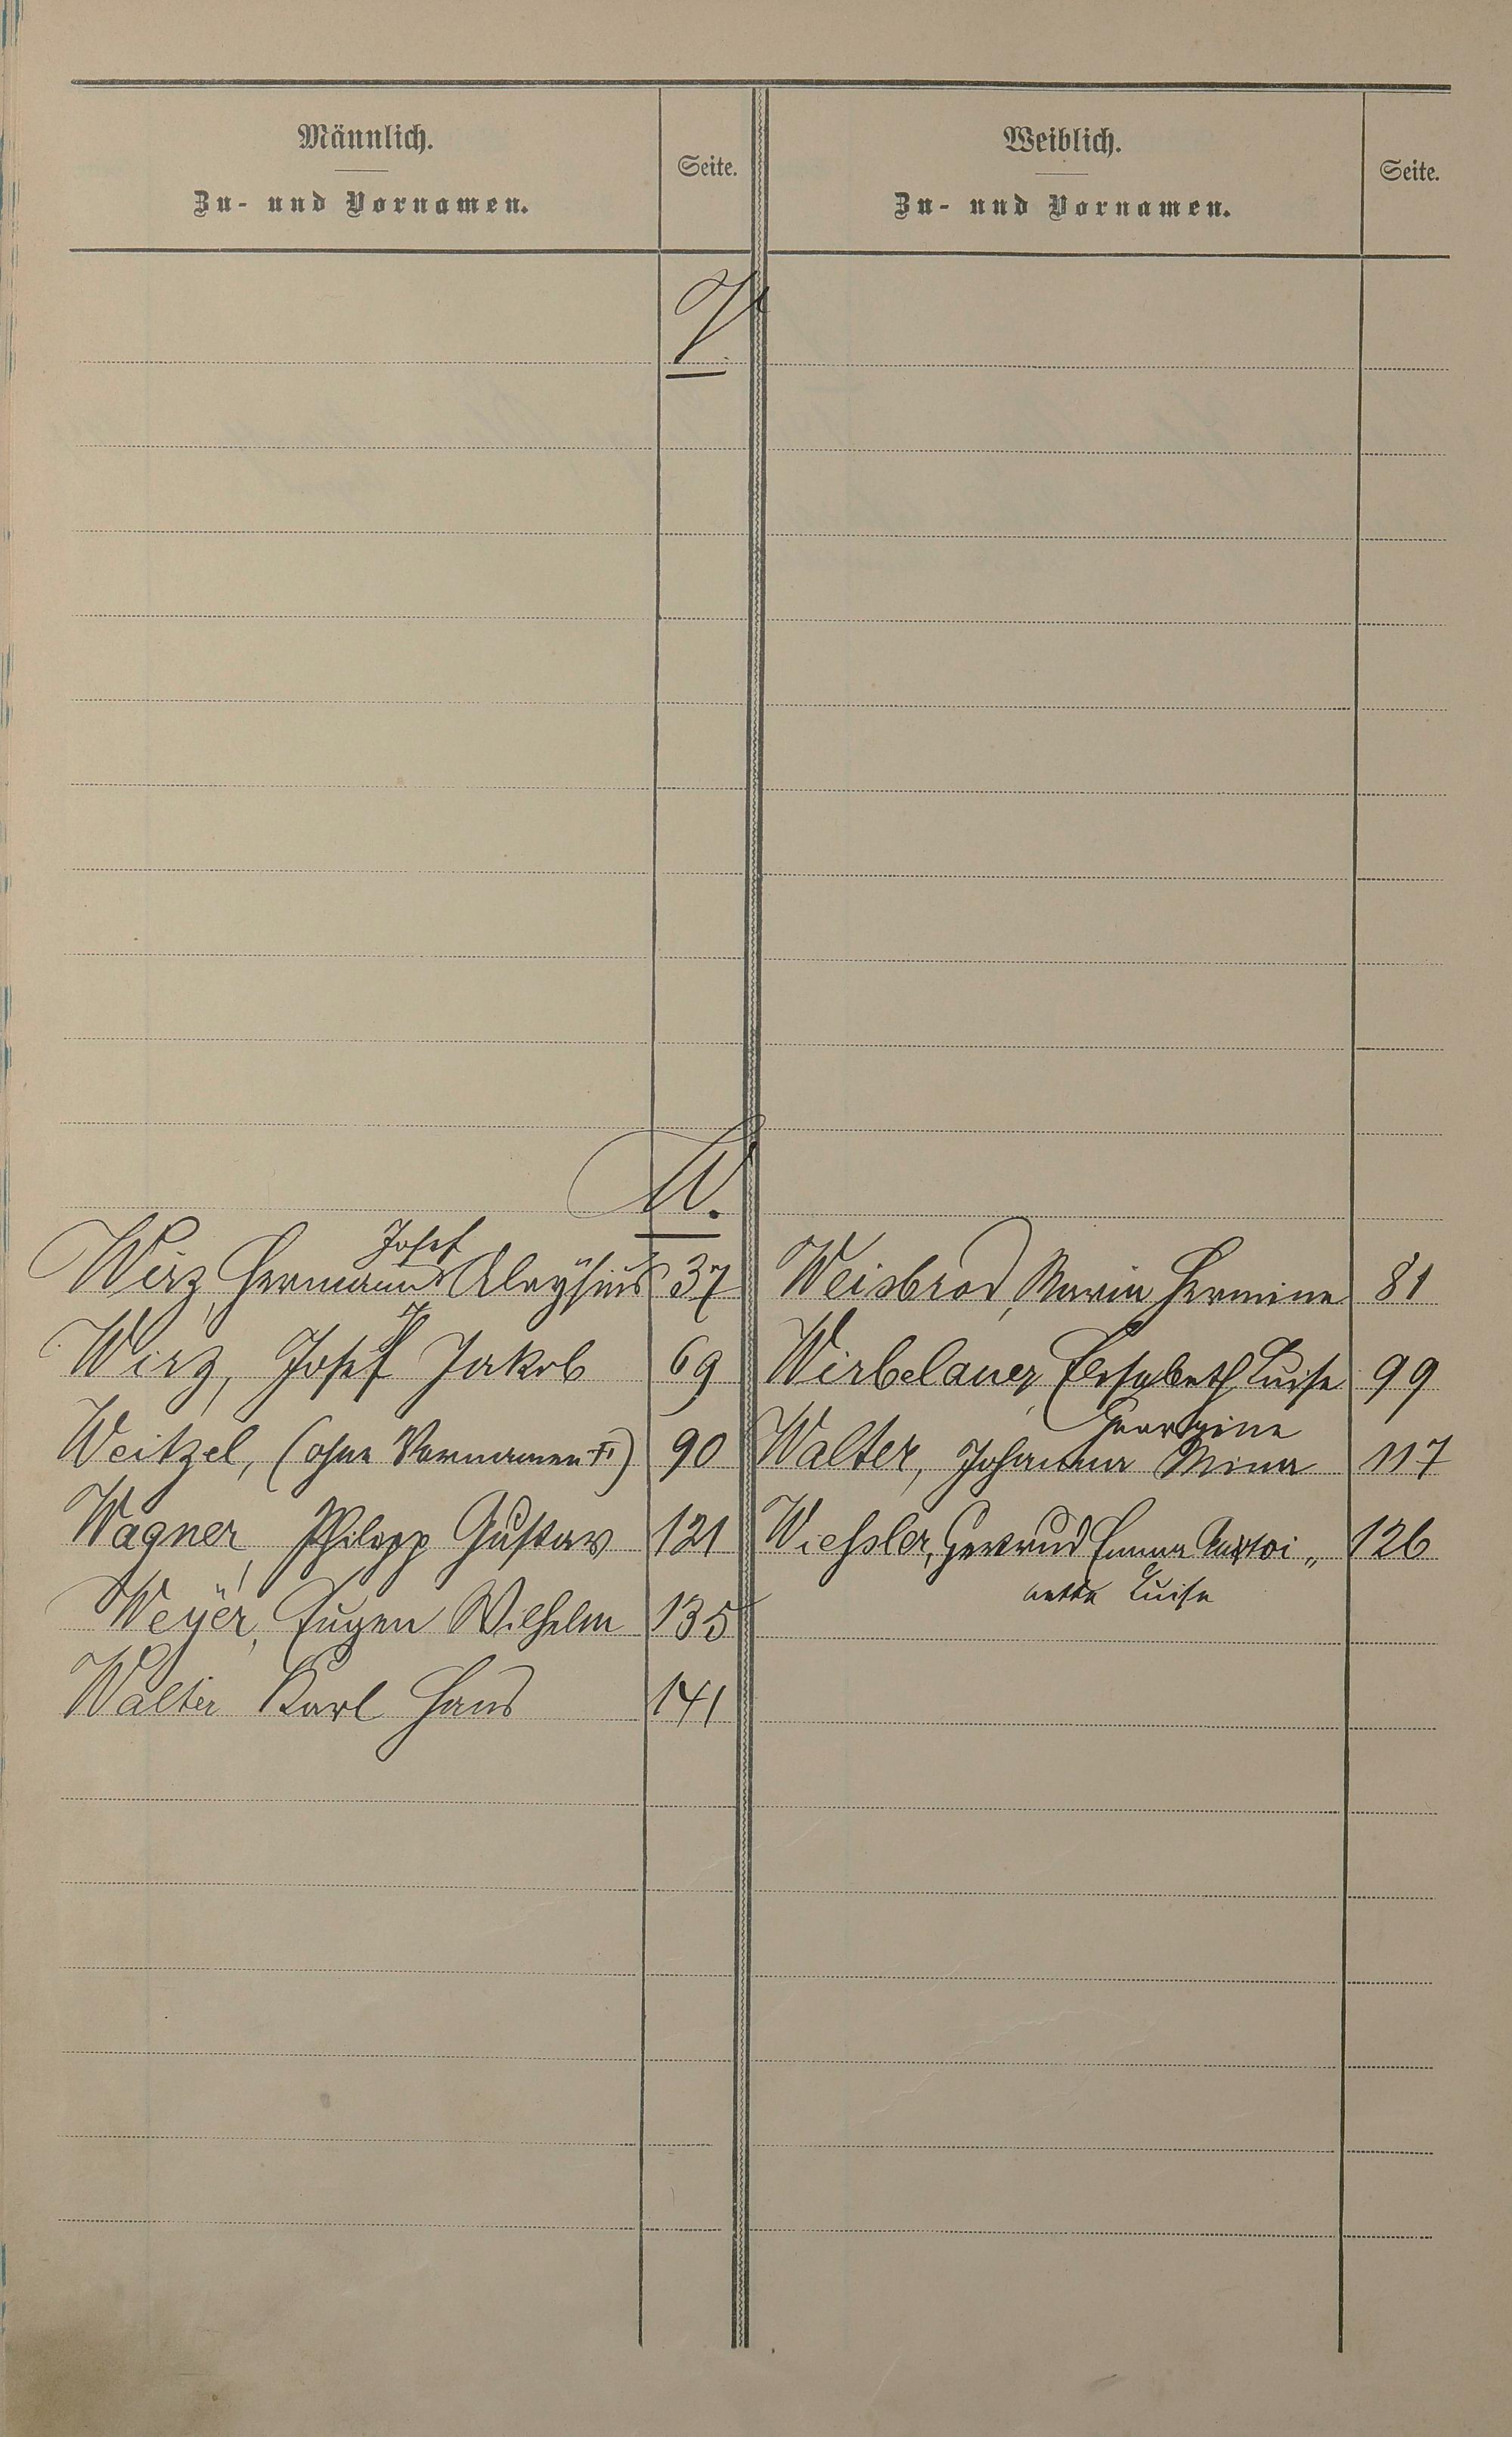 Männlich.
Zu- und Vornamen.
Seite.
Weiblich.
Zu- und Vornamen.
Seite.
V.
W.
Josef
Wirz, Hermann Aloysius 37
Wirz, Josef Jakob 69
Weitzel, (ohne Vornamen †) 90
Wagner, Philipp Gustav 121
Weyer, Eugen Wilhelm 135
Walter Karl Hans 141
Weisbrod, Maria Hermine 81
Wirbelauer, Elisabeth Luise 99
Georgine
Walter, Johanna Mina 117
Wiessler, Gertrud Emma Antoi„ 126
nette Luise